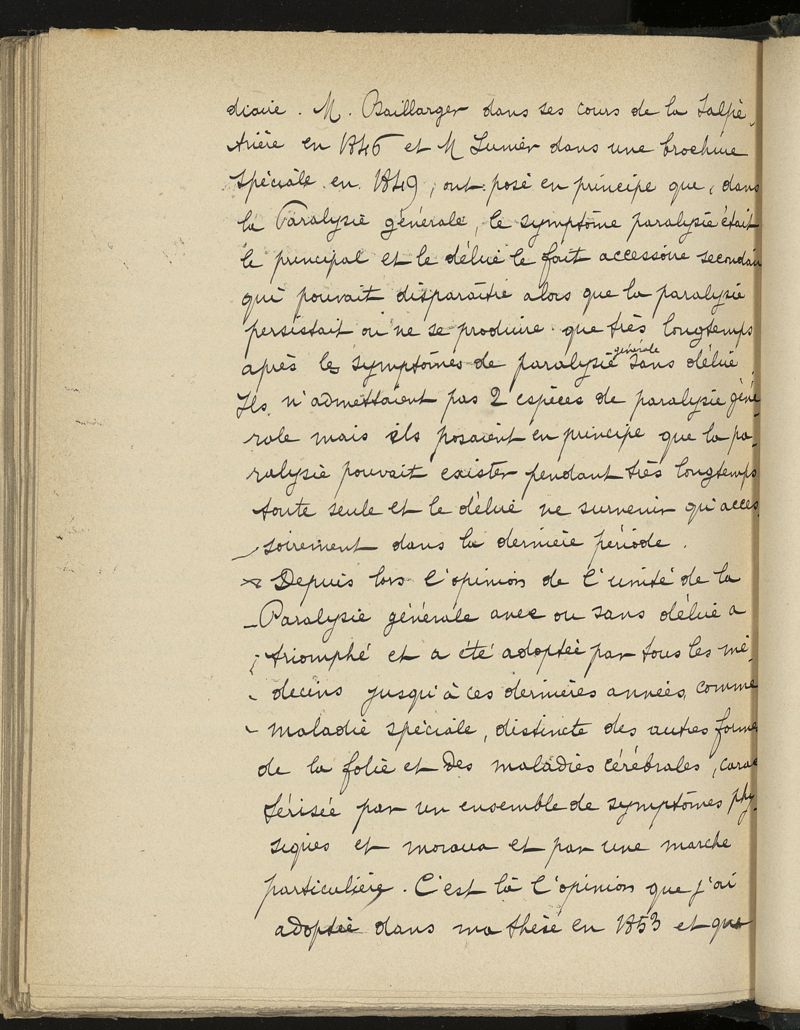 diaire. M. Baillarger dans ses cours de la Salpê-
trière en 1846 et M Lunier dans une brochure
spéciale en 1849, ont posé en principe que, dans
la Paralysie générale, le symptôme paralysie était
le principal et le délire le fait accessoire secondair
qui pouvait disparaître alors que la paralysie
persistait ou ne se produire que très longtemps
après les symptômes de paralysie générale sans délire.
Ils n'admettaient pas 2 espèces de paralysie géné-
rale mais ils posaient en principe que la pa-
ralysie pouvait exister pendant très longtemps
toute seule et le délire ne survenir qu'acces-
soirement dans la dernière période.
Depuis lors l'opinion de l'unité de la
Paralysie générale avec ou sans délire a
triomphé et a été adoptée par tous les mé-
decins jusqu'à ces dernières années, comme
maladie spéciale, distincte des autres formes
de la folie et des maladies cérébrales, carac
térisée par un ensemble de symptômes phy-
siques et moraux et par une marche
particulière. C'est là l'opinion que j'ai
adoptée dans ma thèse en 1853 et que